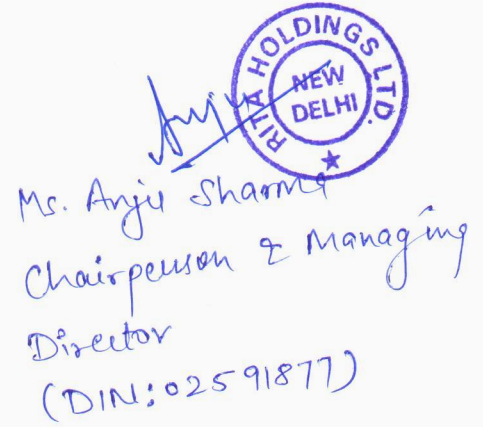 RITA HOLDINGS LTD.
NEW
DELHI
Anju
Ms. Anju Sharma
Chairperson & Managing
Director
(DIN:02591877)